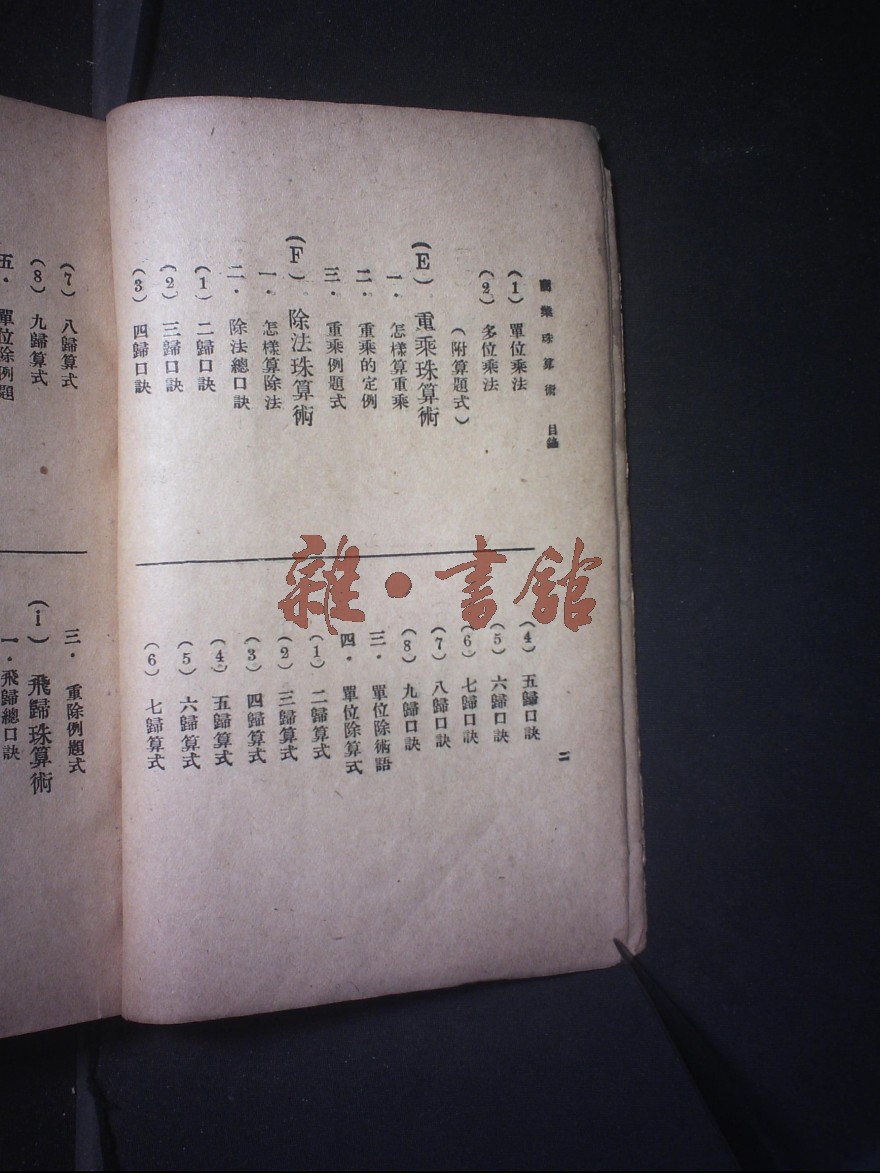 珠算術 目錄
(1) 單位乘法
(2) 多位乘法
(附算題式)
(E) 重乘珠算術
一・怎樣算重乘
二・重乘的定例
三・重乘例題式
(F) 除法珠算術
一・怎樣算除法
二・除法總口訣
(1) 二歸口訣
(2) 三歸口訣
(3) 四歸口訣
二
(4) 五歸口訣
(5) 六歸口訣
(6) 七歸口訣
(7) 八歸口訣
(8) 九歸口訣
三・單位除術語
四・單位除算式
(1) 二歸算式
(2) 三歸算式
(3) 四歸算式
(4) 五歸算式
(5) 六歸算式
(6) 七歸算式
(7) 八歸算式
(8) 九歸算式
五・單位除例題
三・重除例題式
(i) 飛歸珠算術
一・飛歸總口訣
雜・書館